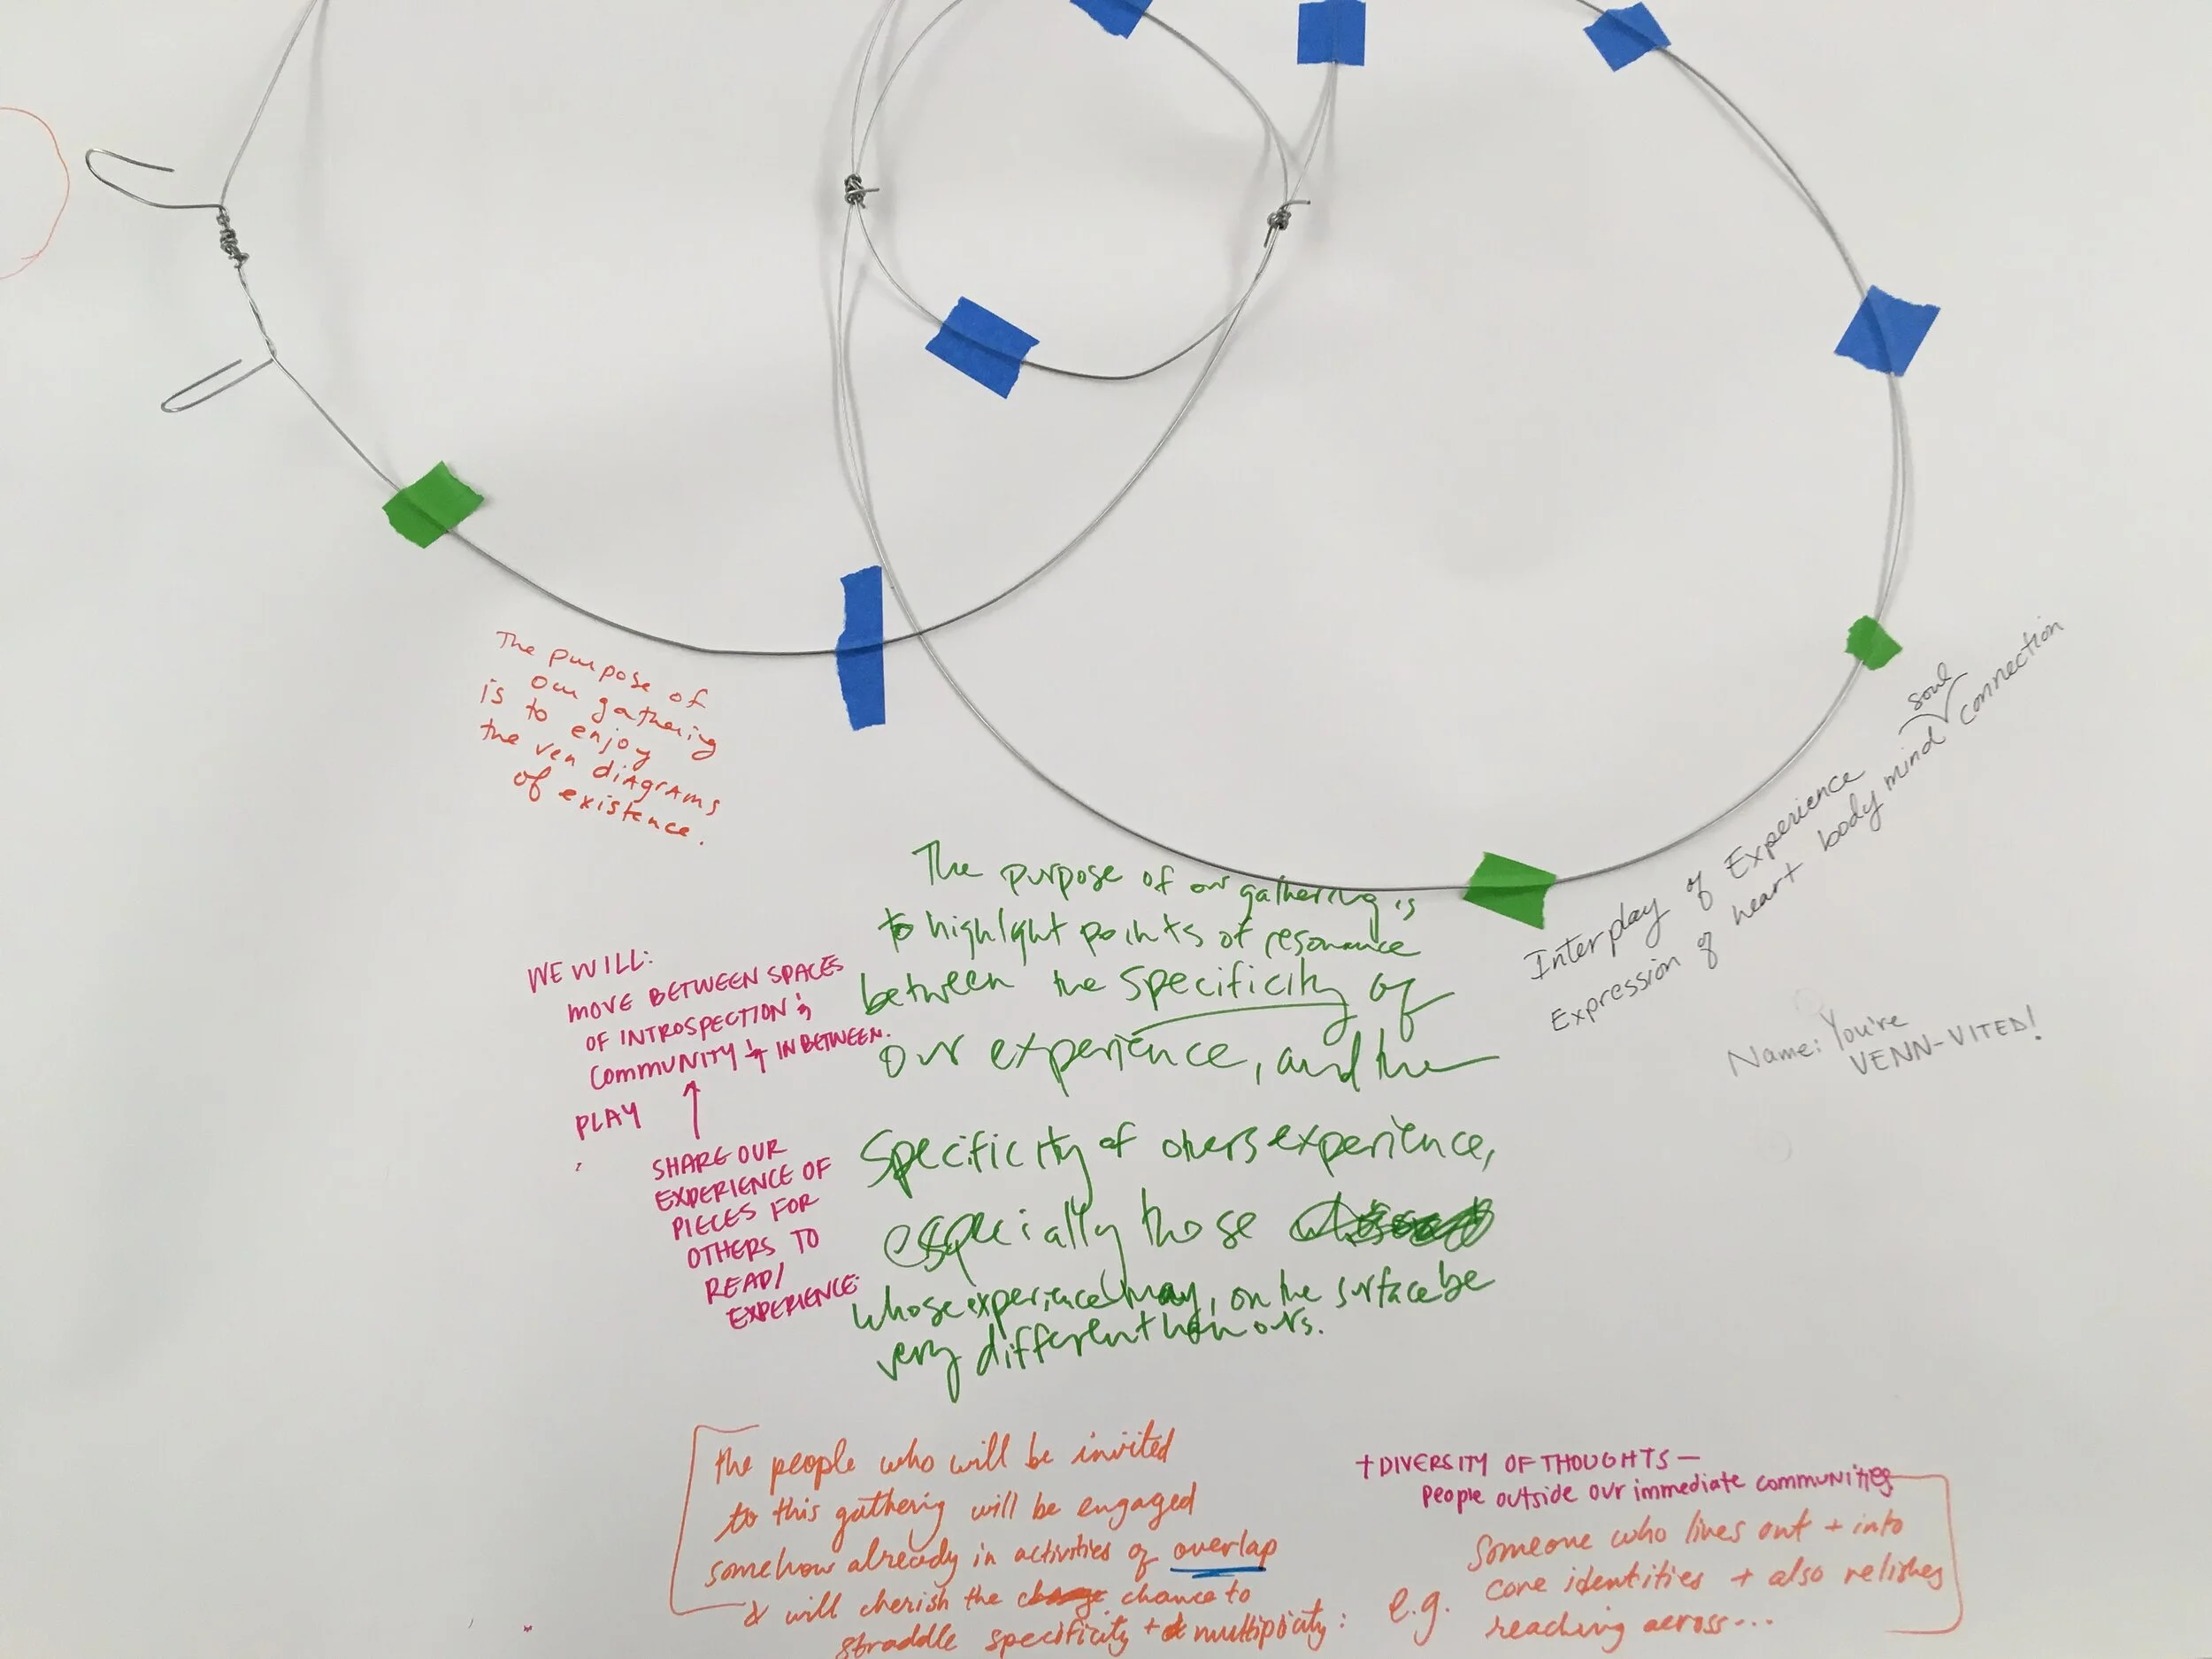 The purpose of
our gathering
is to enjoy
the ven diagrams
of existence.
The purpose of our gathering is
to highlight points of resonance
between the specificity of
our experience, and the
specificity of others experience,
especially those
whose experience may, on the surface be
very different than ours.
WE WILL:
MOVE BETWEEN SPACES
OF INTROSPECTION &
COMMUNITY & IN BETWEEN.
PLAY
SHARE OUR
EXPERIENCE OF
PIECES FOR
OTHERS TO
READ/
EXPERIENCE
Interplay of Experience
Expression of heart body mind soul connection
Name: You're
VENN-VITED!
The people who will be invited
to this gathering will be engaged
somehow already in activities of overlap
& will cherish the chance to
straddle specificity + multiplicity:
+ DIVERSITY OF THOUGHTS —
people outside our immediate communities
e.g. someone who lives out + into
core identities + also relishes
reaching across...